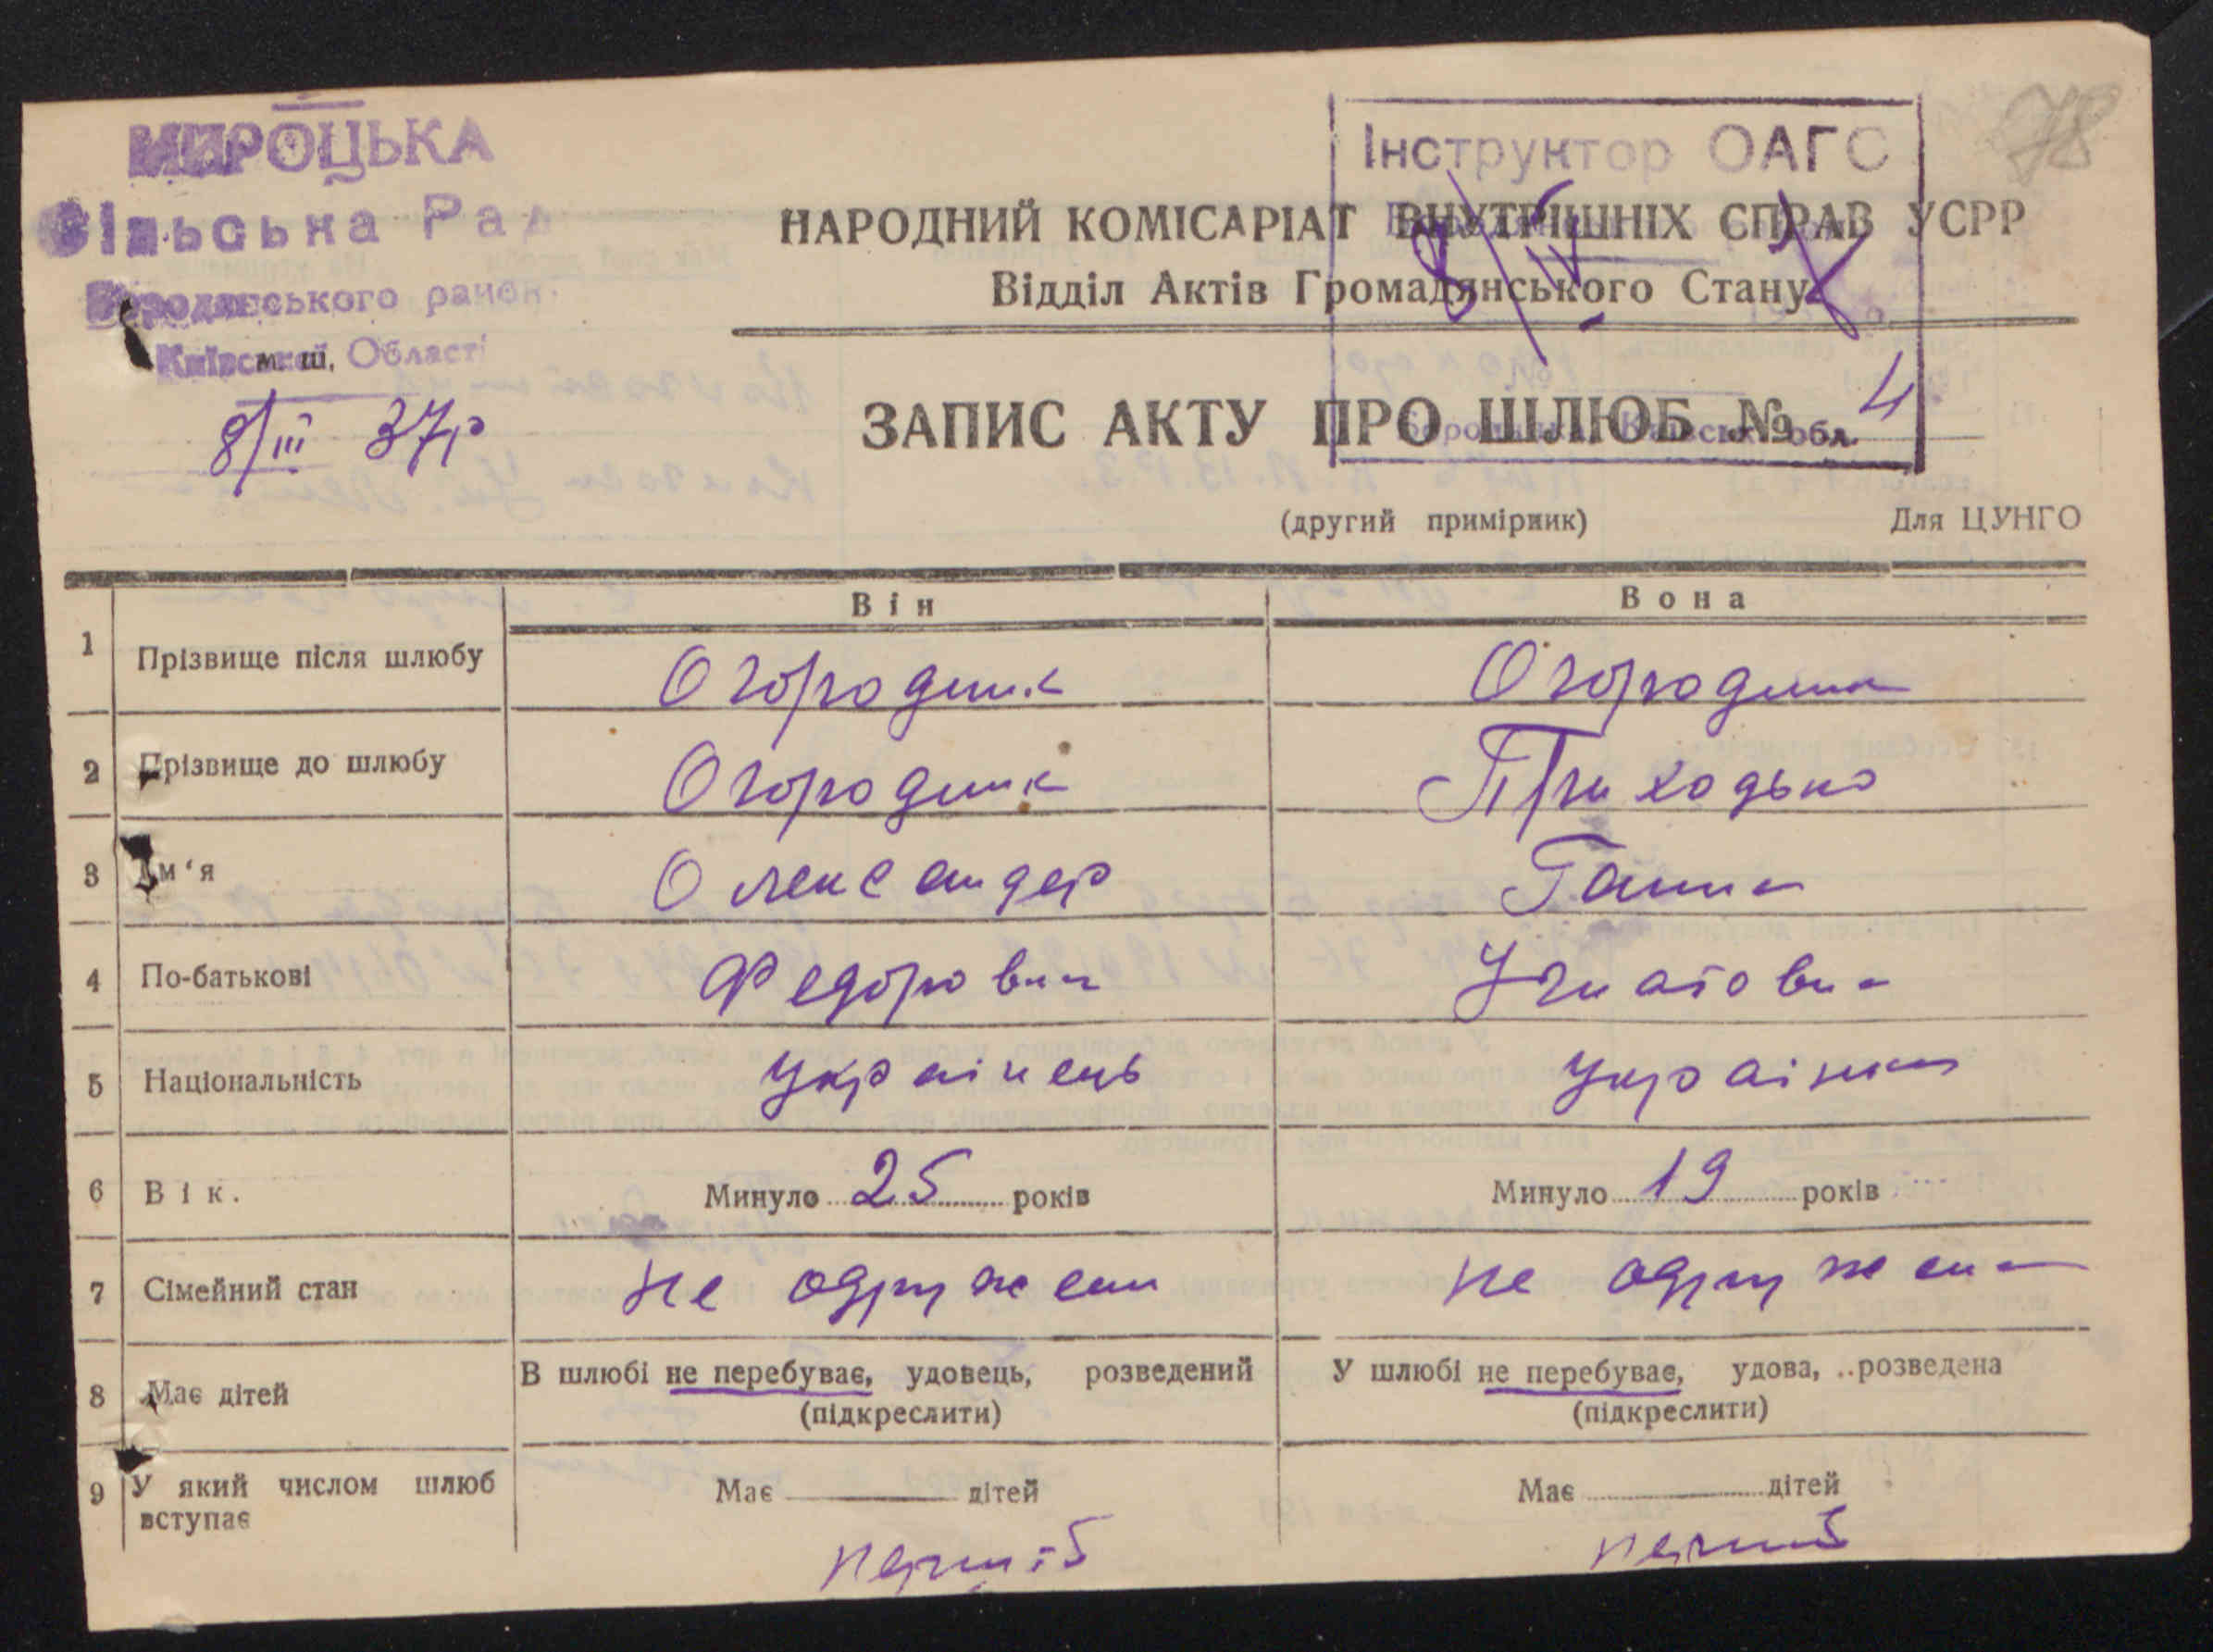 МИРОЦЬКА
Сільська Рад
Бородянського район.
Київської Області
м. ш.
8/III 37р
Інструктор ОАГС
78
НАРОДНИЙ КОМІСАРІАТ ВНУТРІШНІХ СПРАВ УСРР
Відділ Актів Громадянського Стану
8/IV
ЗАПИС АКТУ ПРО ШЛЮБ № 4
обл.
(другий примірник) Для ЦУНГО
Він Вона
1 Прізвище після шлюбу Огородник Огородник
2 Прізвище до шлюбу Огородник Приходько
3 Ім‘я Олександер Ганна
4 По-батькові Федорович Ігнатовна
5 Національність Українець Українка
6 Вік. Минуло 25 років Минуло 19 років
7 Сімейний стан не одружени не одружена
8 Має дітей В шлюбі не перебуває, удовець, розведений У шлюбі не перебуває, удова, розведена
(підкреслити) (підкреслити)
9 У який числом шлюб вступає Має дітей Має дітей
перший перший